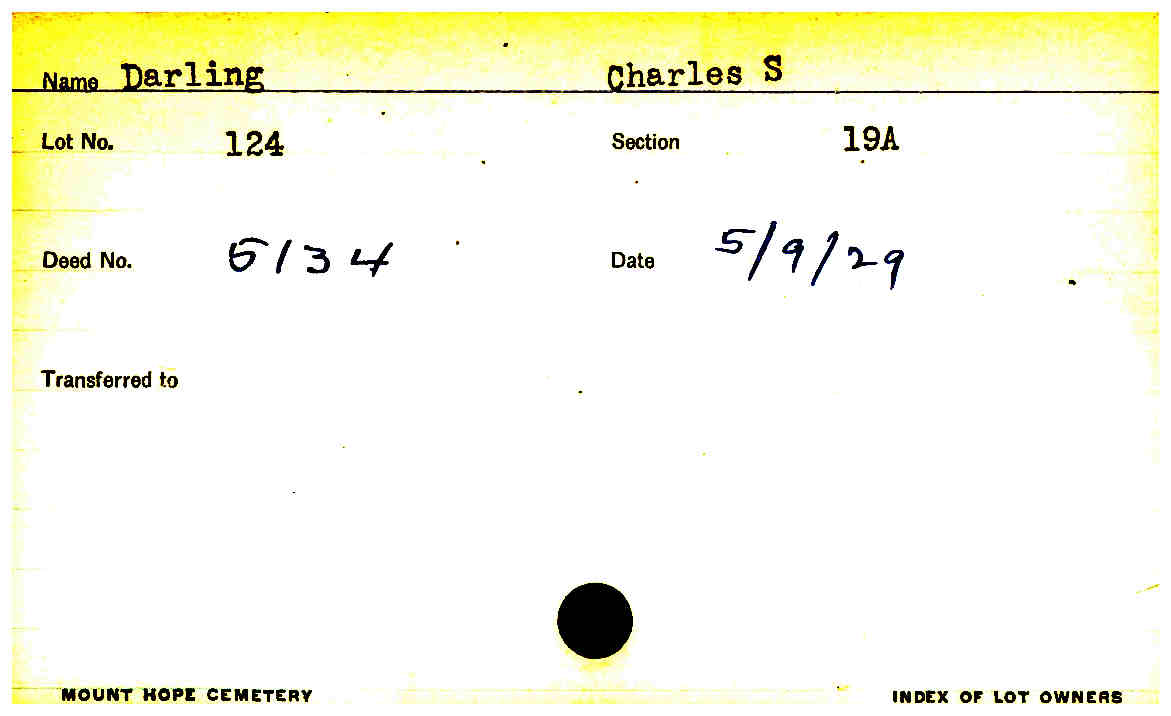 Name Darling Charles S
Lot No. 124 Section 19A
Deed No. 5134 Date 5/9/29
Transferred to
MOUNT HOPE CEMETERY INDEX OF LOT OWNERS